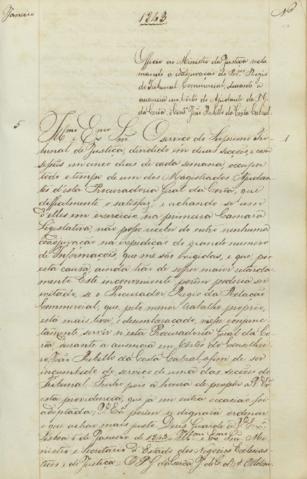 Janeiro
1843
Nº
Officio ao Ministro da Justiça recla
mando a cooperação do Proc. Regio
do Tribunal Commercial, durante a
ausencia
da Corôa, Cons.º João Rebello da Costa Cabral.
5
Illmo Exmo Snr. O serviço do Supremo Tri
bunal de Justiça, dividido em duas secções, com
sessões em cinco dias de cada semana, occupa
todo o tempo de um dos Magistrados Ajudan
tes d'esta Procuradoria Geral da Corôa, que
difficilmente o satisfaz; e achando-se um
d'elles em exercicio na primeira Camara
Legislativa, não posso receber do outro nenhuma
cooperação na expedição do grande numero
de Informações, que me são exigidas, e que por
esta causa ainda hão de soffrer maior retarda
mento. Este inconveniente porém poderia ser
evitado, se o Procurador Regio da Relação
Commercial, que pelo menor trabalho proprio,
está mais livre, e desembaraçado, viesse
tamente servir n'esta Procuradoria Geral da Co
rôa, durante a ausencia em Côrtes do Conselhei
ro João Rebello da Costa Cabral, afim de ser
incumbido do serviço de uma das secções do
Tribunal. Tenho pois a honra de propôr a V. Ex.ª
esta providencia, que já em outra occasião foi
adoptada; V. Ex.ª porém se dignará ordenar
o que achar mais justo. Deus Guarde a V. Ex.ª
Lisboa 5 de Janeiro de 1843. Illmo e Exmo Snr. Mi
nistro e Secretario d'Estado dos Negocios Ecclesias
ticos, e de Justiça. O P. G. da Corôa, J. de C. d'A. Ottolini